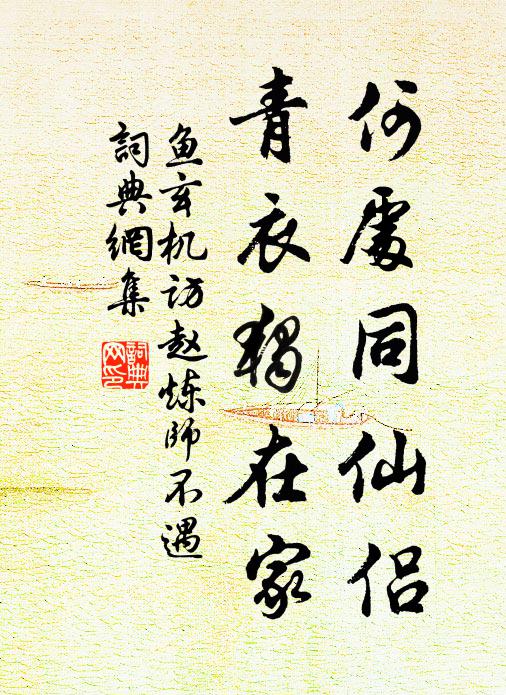 何處同仙侶
青衣獨在家
鱼玄机访赵炼師不遇
詞典網集
詞典
网印